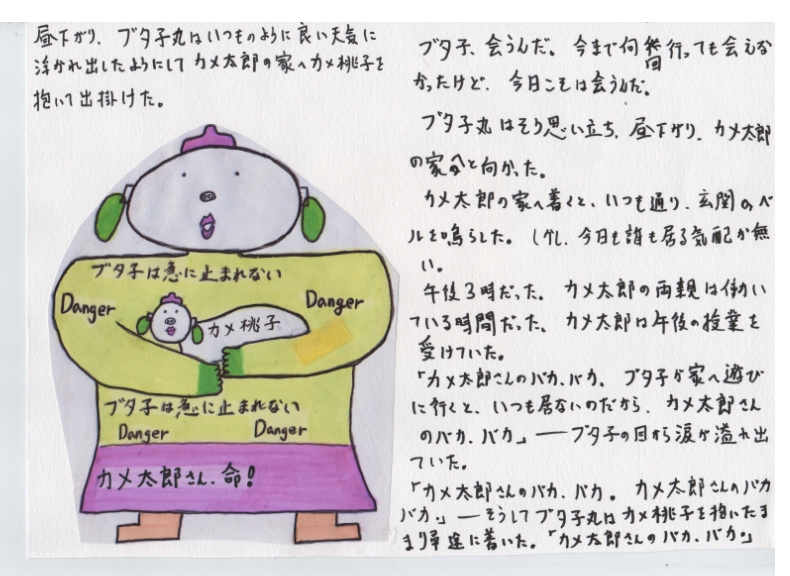 昼下がり、ブタ子丸はいつものように良い天気に
浮かれ出したようにして カメ太郎の家へカメ桃子を
抱いて出掛けた。
ブタ子は急に止まれない
Danger
Danger
カメ桃子
ブタ子は急に止まれない
Danger
Danger
カメ太郎さん、命!
ブタ子、会うんだ。今まで何回行っても会えな
かったけど、今日こそは会うんだ。
ブタ子丸はそう思い立ち、昼下がり、カメ太郎
の家へと向かった。
カメ太郎の家へ着くと、いつも通り、玄関のベ
ルを鳴らした。しかし、今日も誰も居る気配が無
い。
午後3時だった。カメ太郎の両親は働い
ている時間だった、カメ太郎は午後の授業を
受けていた。
「カメ太郎さんのバカ、バカ。ブタ子が家へ遊び
に行くと、いつも居ないのだから、カメ太郎さん
のバカ、バカ」──ブタ子の目から涙が溢れ出
ていた。
「カメ太郎さんのバカ、バカ。カメ太郎さんのバカ
バカ。」──そうしてブタ子丸はカメ桃子を抱いたま
ま帰途に着いた。「カメ太郎さんのバカ、バカ。」